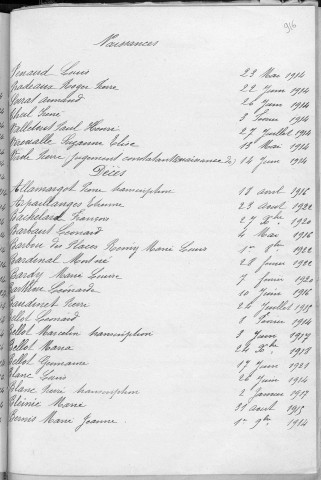 916
Naissances
Renaud Louis 23 Mai 1914
Nadeaux Roger Pierre 22 Juin 1914
armand 26 Juin 1914
René 8 Février 1914
Valleteret Paul Henri 27 Juillet 1914
Suzanne Elise 15 Mai 1914
Pierre jugement constatant naissance de 14 Juin 1914
Décès
Allamargot Pierre transcription 18 août 1916
Apaillanges Etienne 23 août 1922
Bachelard François 27 Xbre 1920
Barbaut Léonard 4 Mai 1916
Barbou des Places Remy Marie Louis 1er 1922
Bardenal 28 1922
Bardy Marie Louise 7 Juin 1920
Barthère Léonard 10 Juin 1916
Baudinet Pierre 24 Juillet 1915
Bellot Léonard 8 Février 1914
Bellot Marcelin transcription 8 Juin 1917
Bellot Maria 24 Xbre 1918
Bellot Germaine 17 Juin 1921
Blanc Louis 26 Juin 1914
Blanc René transcription 2 Janvier 1917
Marie 31 août 1915
Bernis Marie Jeanne 1er 9bre 1914